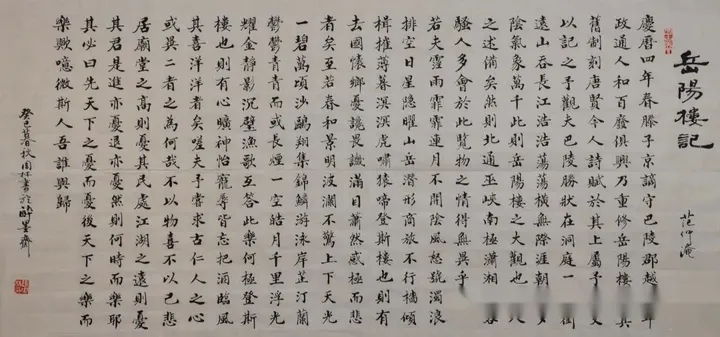 岳陽樓記
范仲淹
慶曆四年春滕子京謫守巴陵郡越年
政通人和百廢俱興乃重修岳陽樓其
舊制刻唐賢今人詩賦於其上屬予文
以記之予觀夫巴陵勝狀在洞庭一銜
遠山吞長江浩浩蕩蕩橫無際涯朝夕
陰氣象萬千此則岳陽樓之大觀也人
之述備矣然則北通巫峽南極瀟湘客
騷人多會於此覽物之情得無異乎
若夫霪雨霏霏連月不開陰風怒號濁浪
排空日星隱曜山岳潛形商旅不行檣傾
楫摧薄暮溟溟虎嘯猿啼登斯樓也則有
去國懷鄉憂讒畏譏滿目蕭然感極而悲
者矣至若春和景明波瀾不驚上下天光
一碧萬頃沙鷗翔集錦鱗游泳岸芷汀蘭
鬱鬱青青而或長煙一空皓月千里浮光
耀金靜影沉璧漁歌互答此樂何極登斯
樓也則有心曠神怡寵辱皆忘把酒臨風
其喜洋洋者矣嗟夫予嘗求古仁人之心
或異二者之為何哉不以物喜不以己悲
居廟堂之高則憂其民處江湖之遠則憂
其君是進亦憂退亦憂然則何時而樂耶
其必曰先天下之憂而憂後天下之樂而
樂歟噫微斯人吾誰與歸
癸巳春林書於墨齋